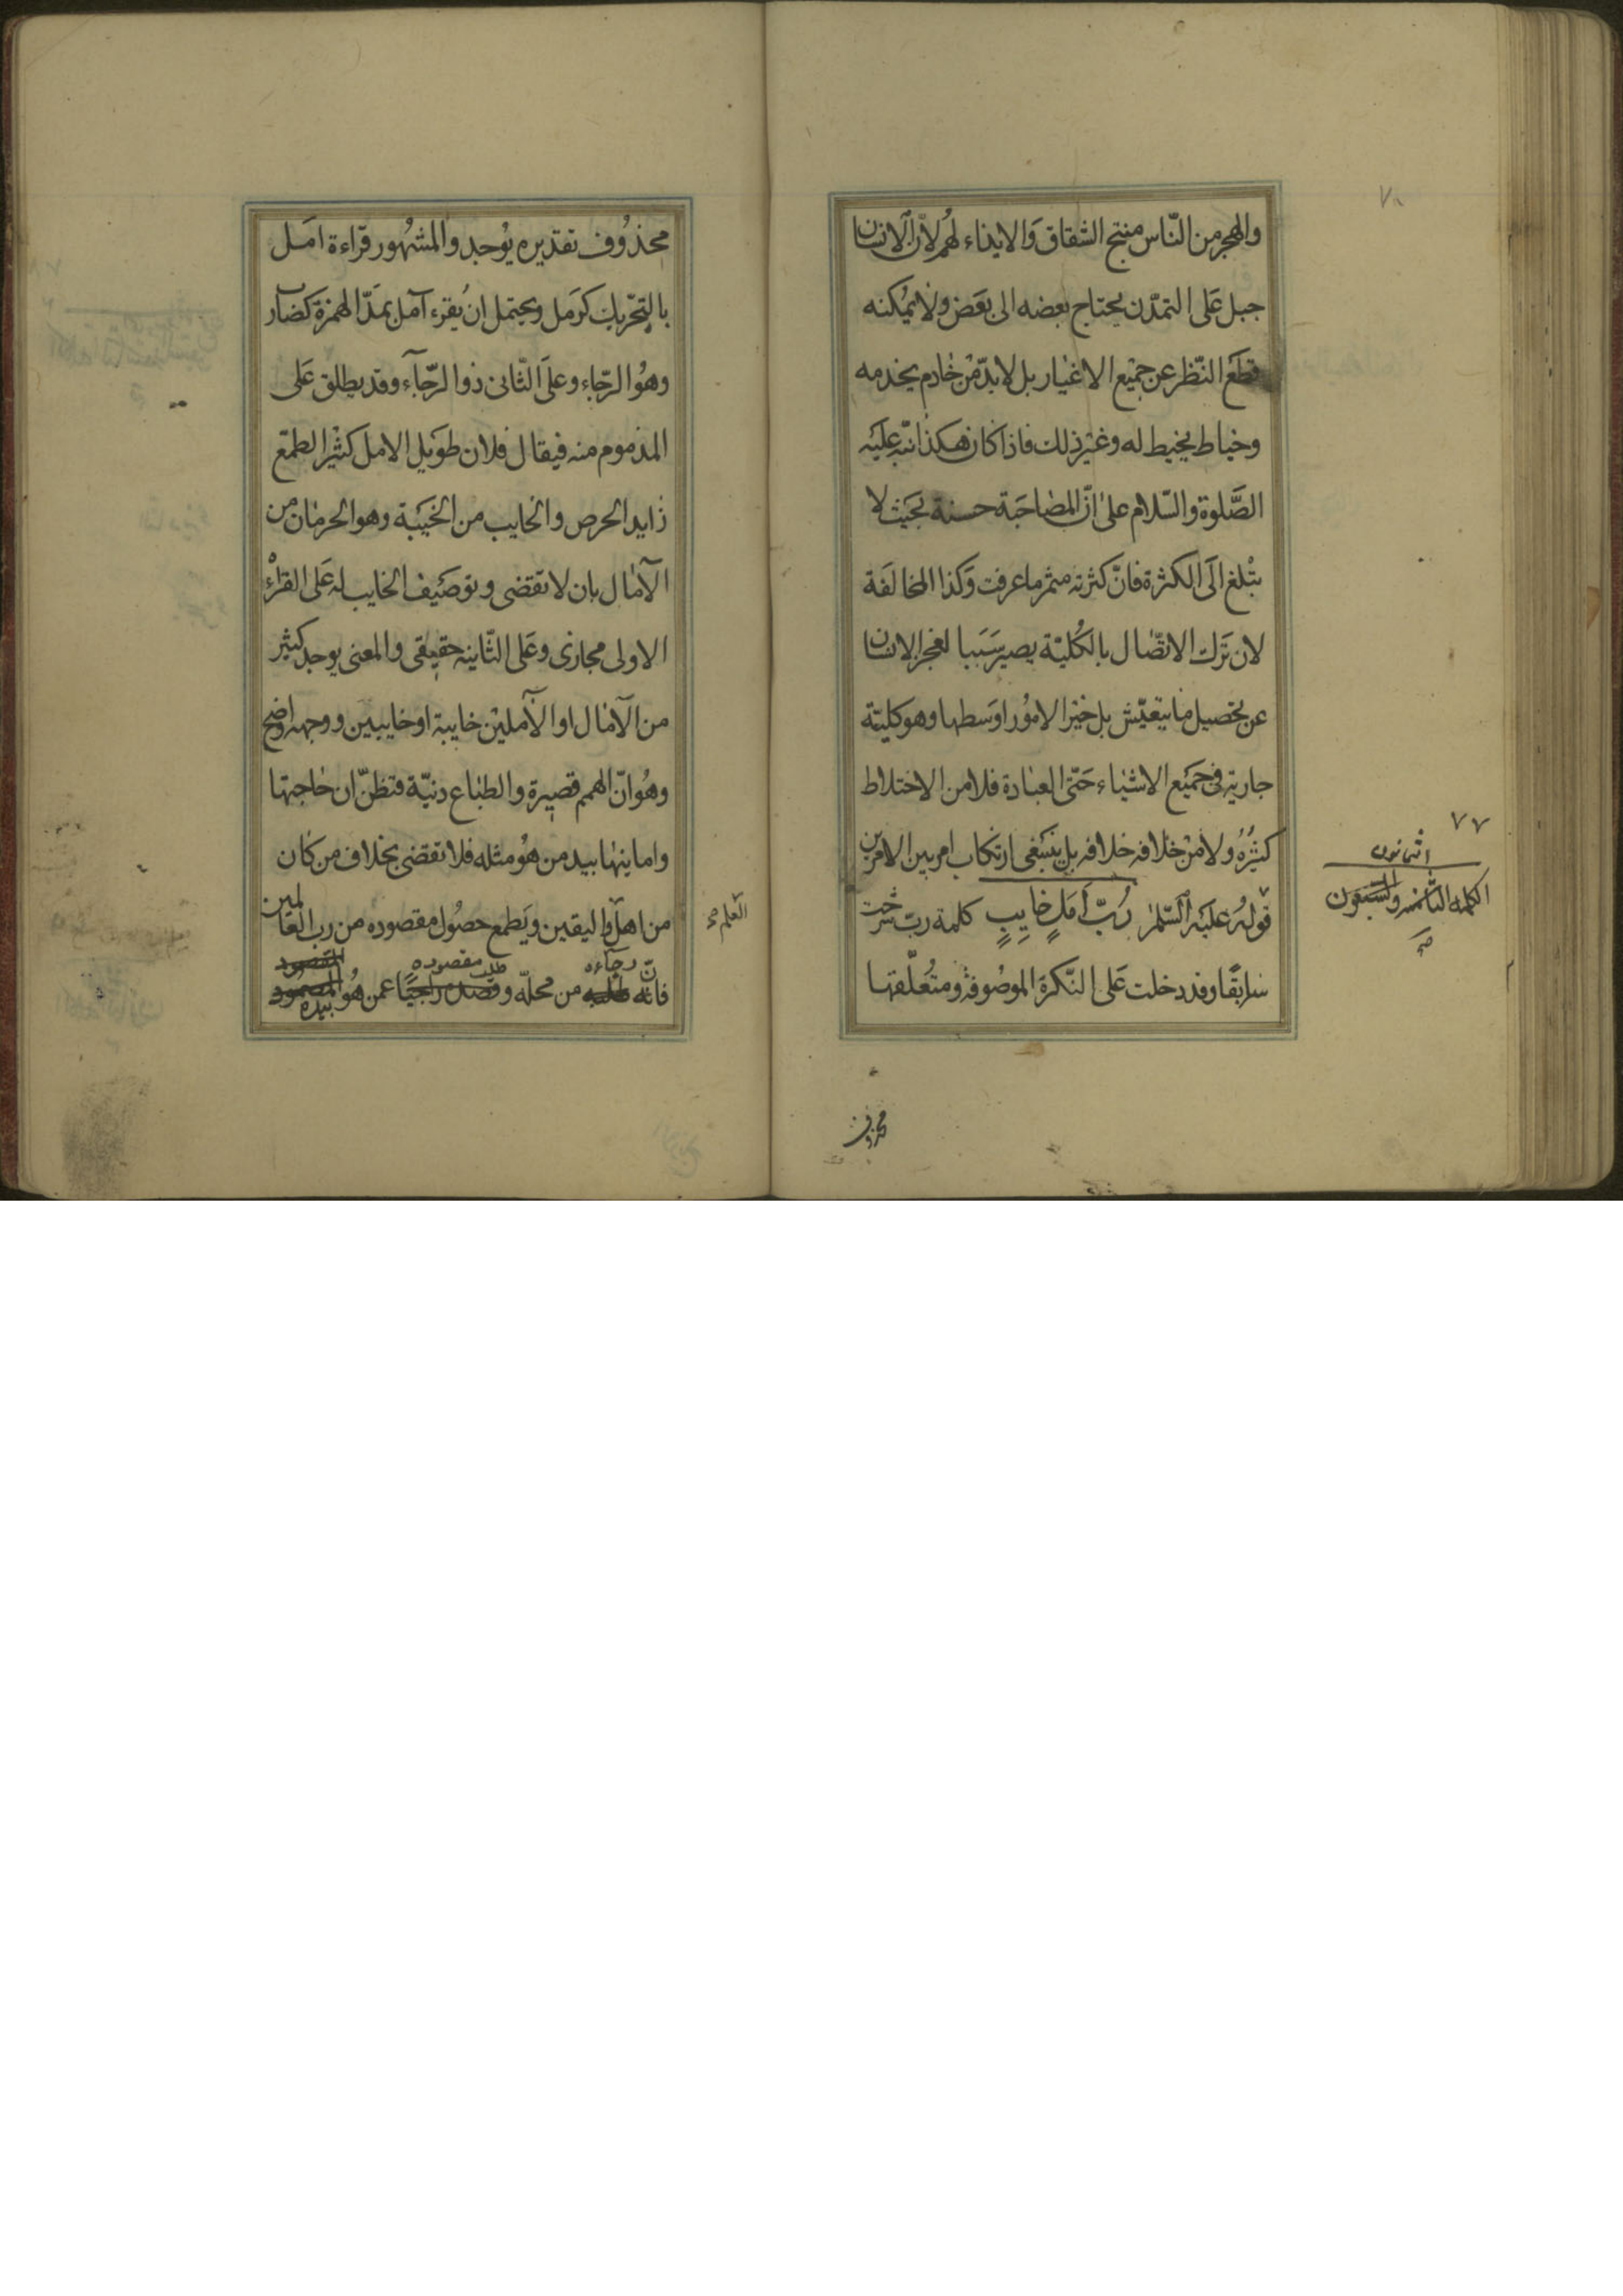 والهجر من النّاس منتج الشقاق وَالايذاء لهُم لانّ الانسان
جبل عَلى التمدّن يحتاج بعضه الى بعَض ولا يمُكنه
قطعَ النّظر عن جميْع الاغيار بل لا بدّ مْن خادم يخدمه
وخياط يخيط له وغيْر ذلك فاذا كان هكذا نبّه عليَه
الصَّلوة والسّلام علىٰ انّ المصٰاحَبَة حسنة بحَيث لا
يبْلغ الَى الكثرة فانّ كثرته مثمر ما عرفت وَكذا المخالفَة
لان تَرك الاتصّال بالكُليّة يصير سَبَبا لعجز الانسان
عن تحصيل ما يتعيّش بل خيْر الامُور اوسَطها وهو كليّة
جارية فى جمَيع الاشيٰاء حَتّى العبٰادة فلا من الاختلاط
كثيْرُهُ ولا منْ خلافه خلافه بل ينبَغى ارتكاب امر بين الامرين
قولهُ عليَه السّلٰم رُبّ اَمَلٍ خٰايبٍ كلمة ربّ شرحت
سٰابقًا وقد دخلت عَلى النّكرة الموصُوفة ومتعُلّقهٰا
محذوف
٧٠
٧٧
الكلمة الثامنة والسّبعون
صح
محذُوف تقدّيره يوُجد والمشهُور قرّاءة امَل
بالتّحرّيك كرَمل ويحتمل انْ يُقرء آمل بمَدّ الهمزة كضَارّ
وهُو الرّجاء وعلَى الثّانى ذوا الرّجآء وقد يطلق عَلى
المذموم منه فيقال فلان طوَيل الامل كثيْر الطمّع
زايد الحرص والخايب من الخيَبة وهو الحرمٰان من
الآمٰال بان لا تقضى وتوصَيف الخايب له عَلى القراءْ
الاولى مجازى وعَلى الثّانية حقيقى والمعنى يوجد كثيْر
من الآمٰال او الآمليْن خايبة او خايبين ووجهه واضح
وهُو انّ الهمم قصيرة والطبٰاع دنيّة فتظنّ ان حٰاجتها
وامانيهٰا بيد من هُو مثله فلا تقضى بخلاف من كٰان
من اهل واليقين ويَطمع حصُول مقصوده من رب العَالمين
فانّ رجآءه من محلّه وطلب مقصوده عمن هُو بيده
العلم صح